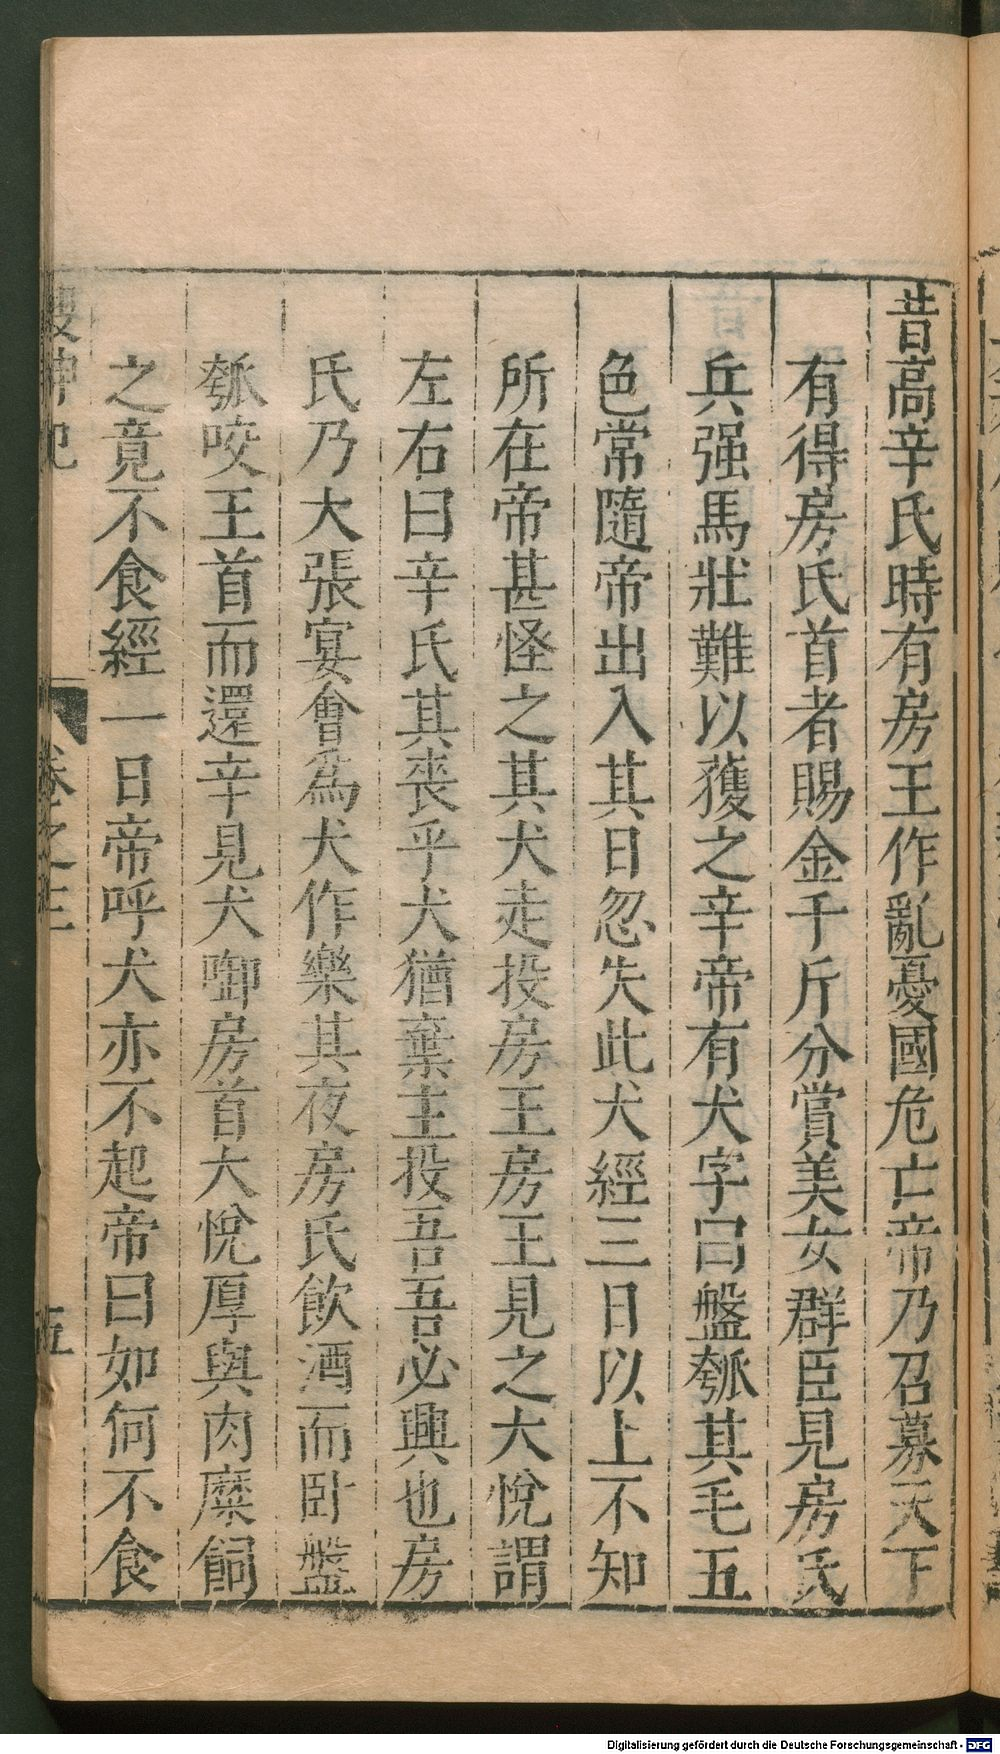 昔高辛氏時有房王作亂憂國危亡帝乃召募天下
有得房氏首者賜金千斤分賞美女群臣見房氏
兵强馬壯難以獲之辛帝有犬字曰盤瓠其毛五
色常隨帝出入其日忽失此犬經三日以上不知
所在帝甚怪之其犬走投房王房王見之大悅謂
左右曰辛氏其喪乎犬猶棄主投吾吾必興也房
氏乃大張宴會爲犬作樂其夜房氏飲酒而卧盤
瓠咬王首而還辛見犬啣房首大悅厚與肉糜飼
之竟不食經一日帝呼犬亦不起帝曰如何不食
搜神記
卷之三
五
Digitalisierung gefördert durch die Deutsche Forschungsgemeinschaft - DFG